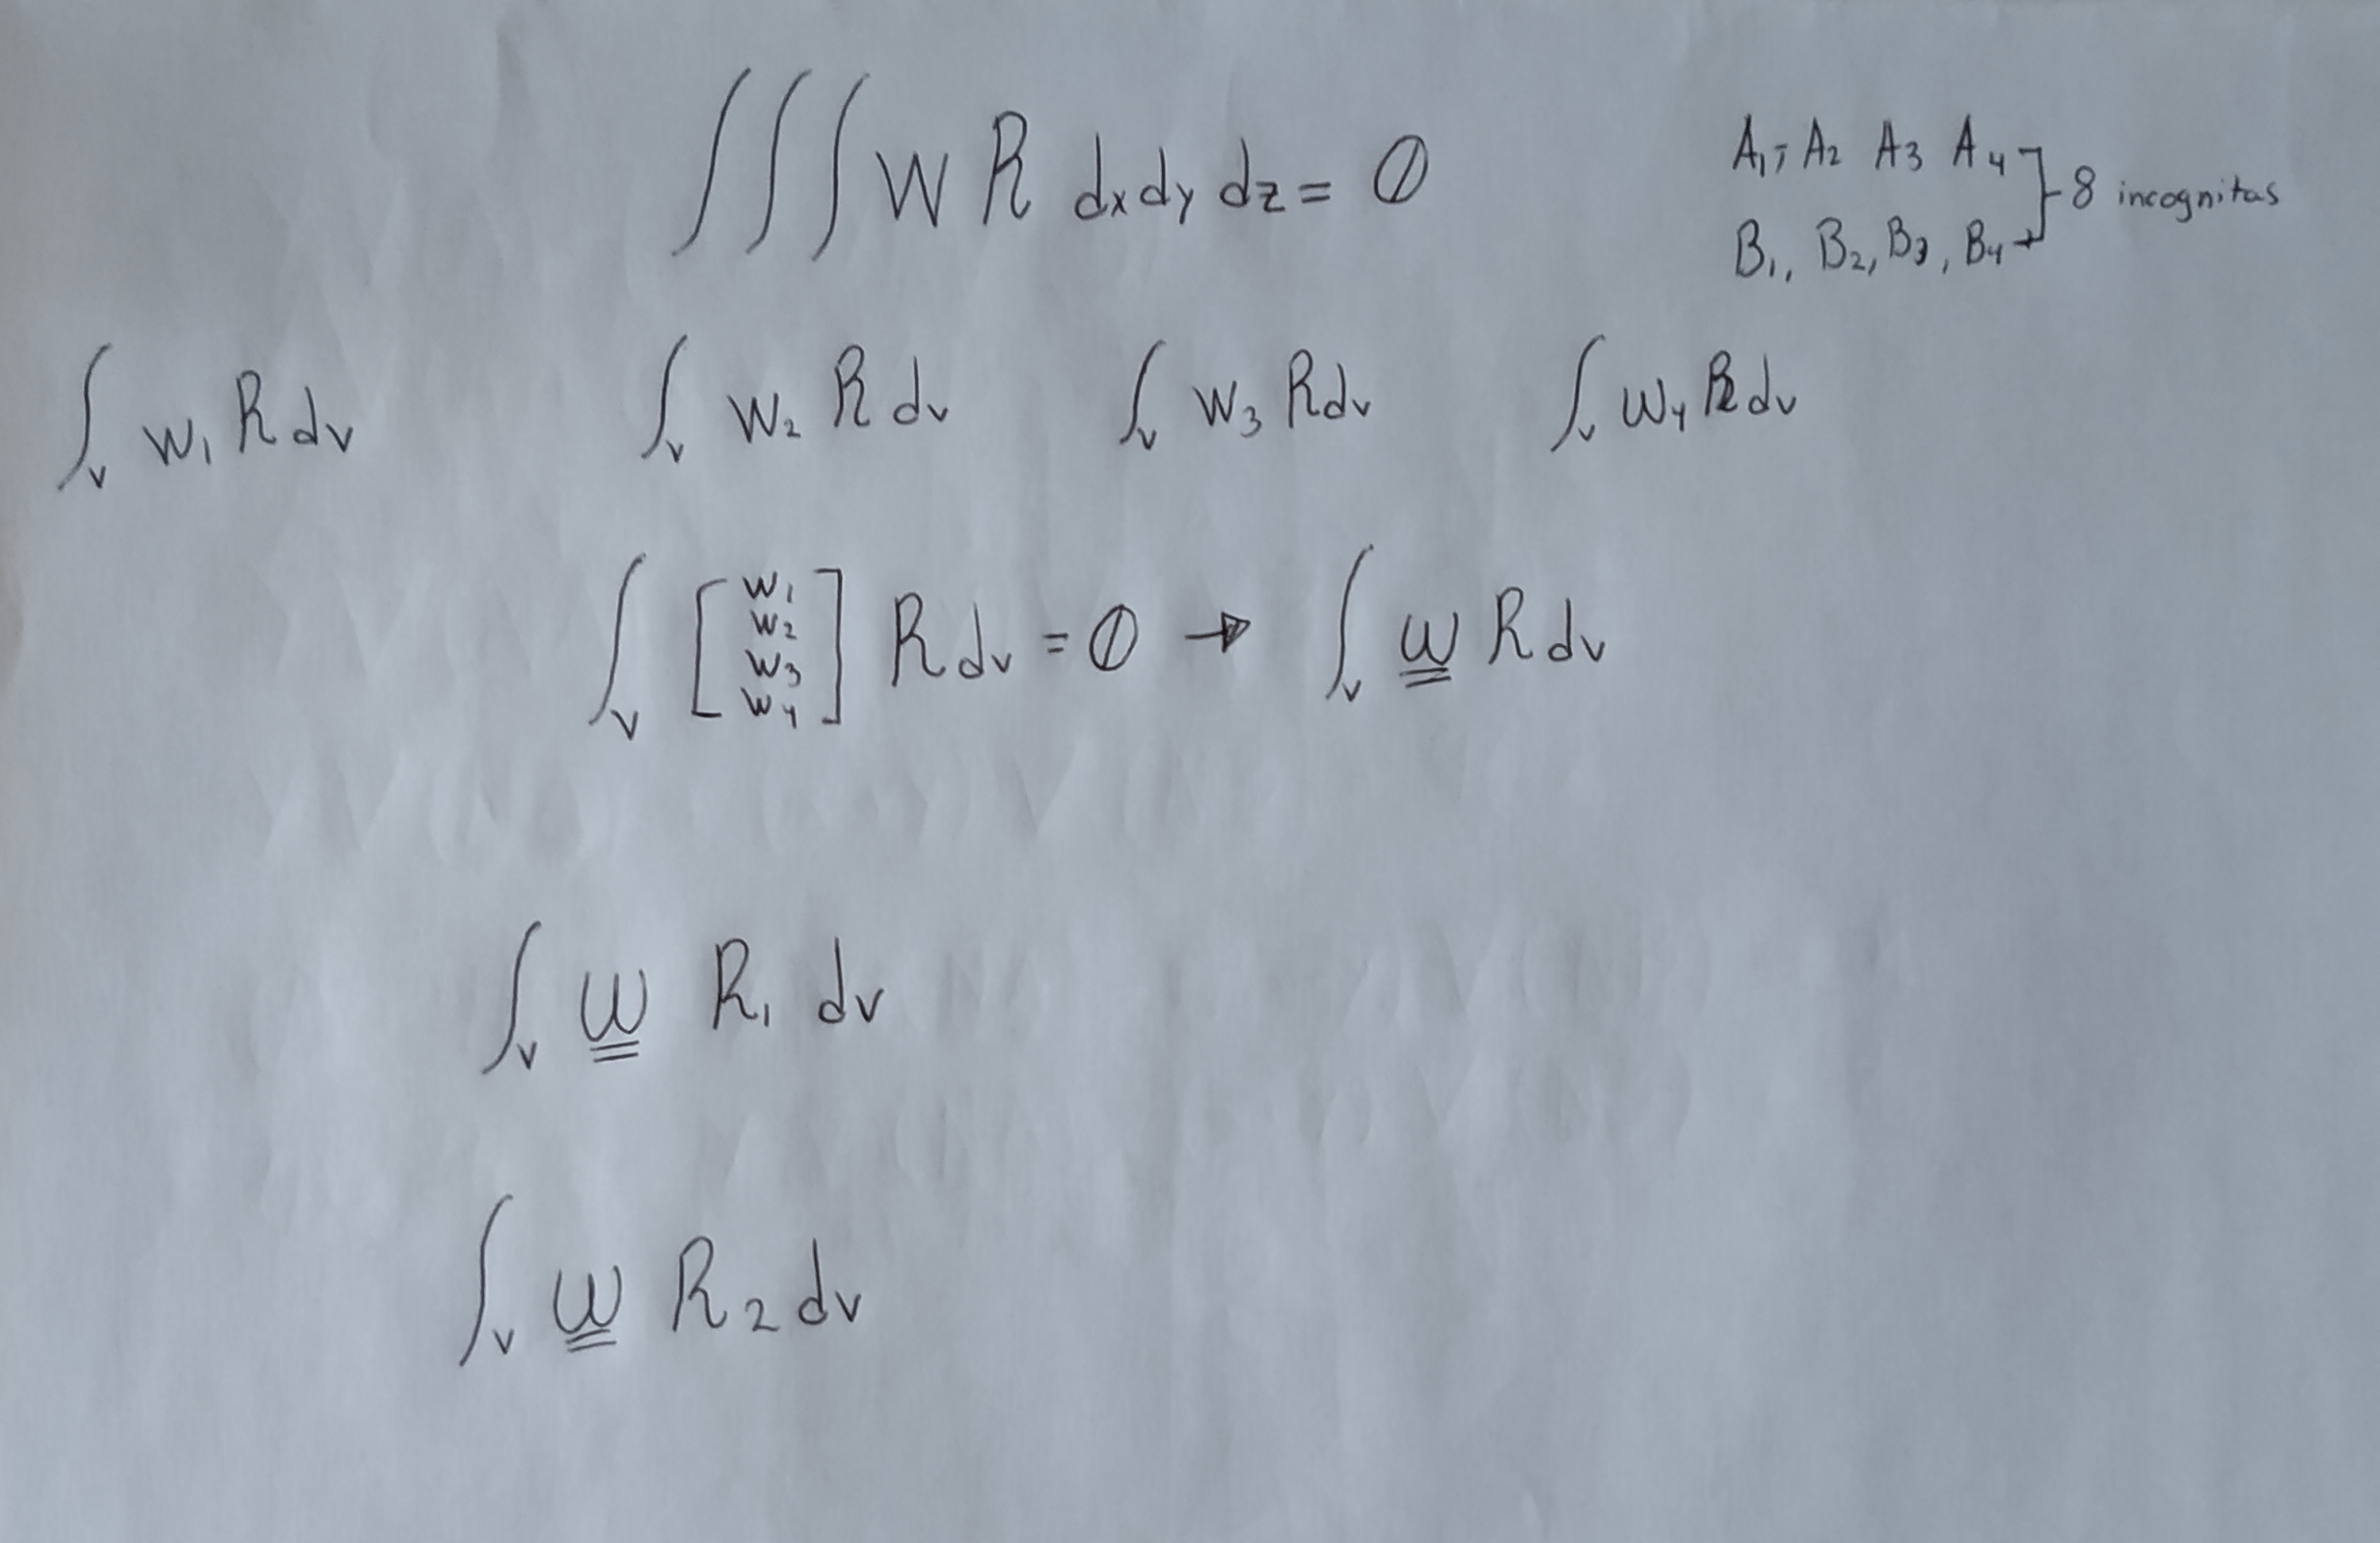 ∫∫∫ W R dx dy dz = 0
A1, A2 A3 A4
B1, B2, B3, B4
8 incognitas
∫v W1 R dv ∫v W2 R dv ∫v W3 R dv ∫v W4 R dv
∫v [W1 W2 W3 W4] R dv = 0 → ∫v W R dv
∫v W R1 dv
∫v W R2 dv